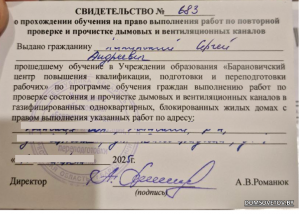 СВИДЕТЕЛЬСТВО № 683
о прохождении обучения на право выполнения работ по повторной
проверке и прочистке дымовых и вентиляционных каналов
Выдано гражданину Сергей
Андреевич
прошедшему обучение в Учреждении образования «Барановичский
центр повышения квалификации, подготовки и переподготовки
рабочих» по программе обучения граждан выполнению работ по
проверке состояния и прочистке дымовых и вентиляционных каналов в
газифицированных одноквартирных, блокированных жилых домах с
правом выполнения указанных работ по адресу:
2025г.
Директор А.В.Романюк
(подпись)
DOMSOVETOV.BY